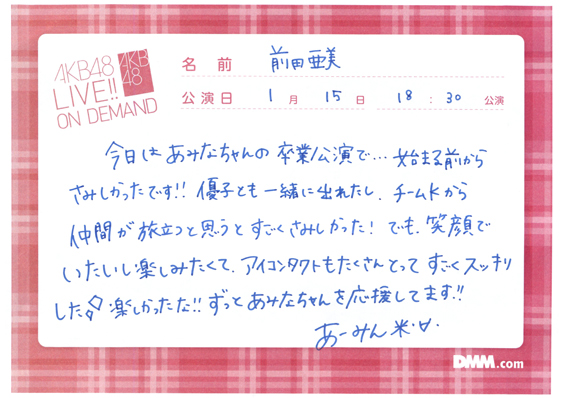 AKB48
LIVE!!
ON DEMAND
AKB
48
名前 前田亜美
公演日 1月 15日 18:30 公演
今日はあみなちゃんの卒業公演で…始まる前から
さみしかったです!! 優子とも一緒に出れたし、チームKから
仲間が旅立つと思うとすごくさみしかった! でも、笑顔で
いたいし楽しみたくて、アイコンタクトもたくさんとってすごくスッキリ
した 楽しかったな!! ずっとあみなちゃんを応援してます!!
あーみん
DMM.com